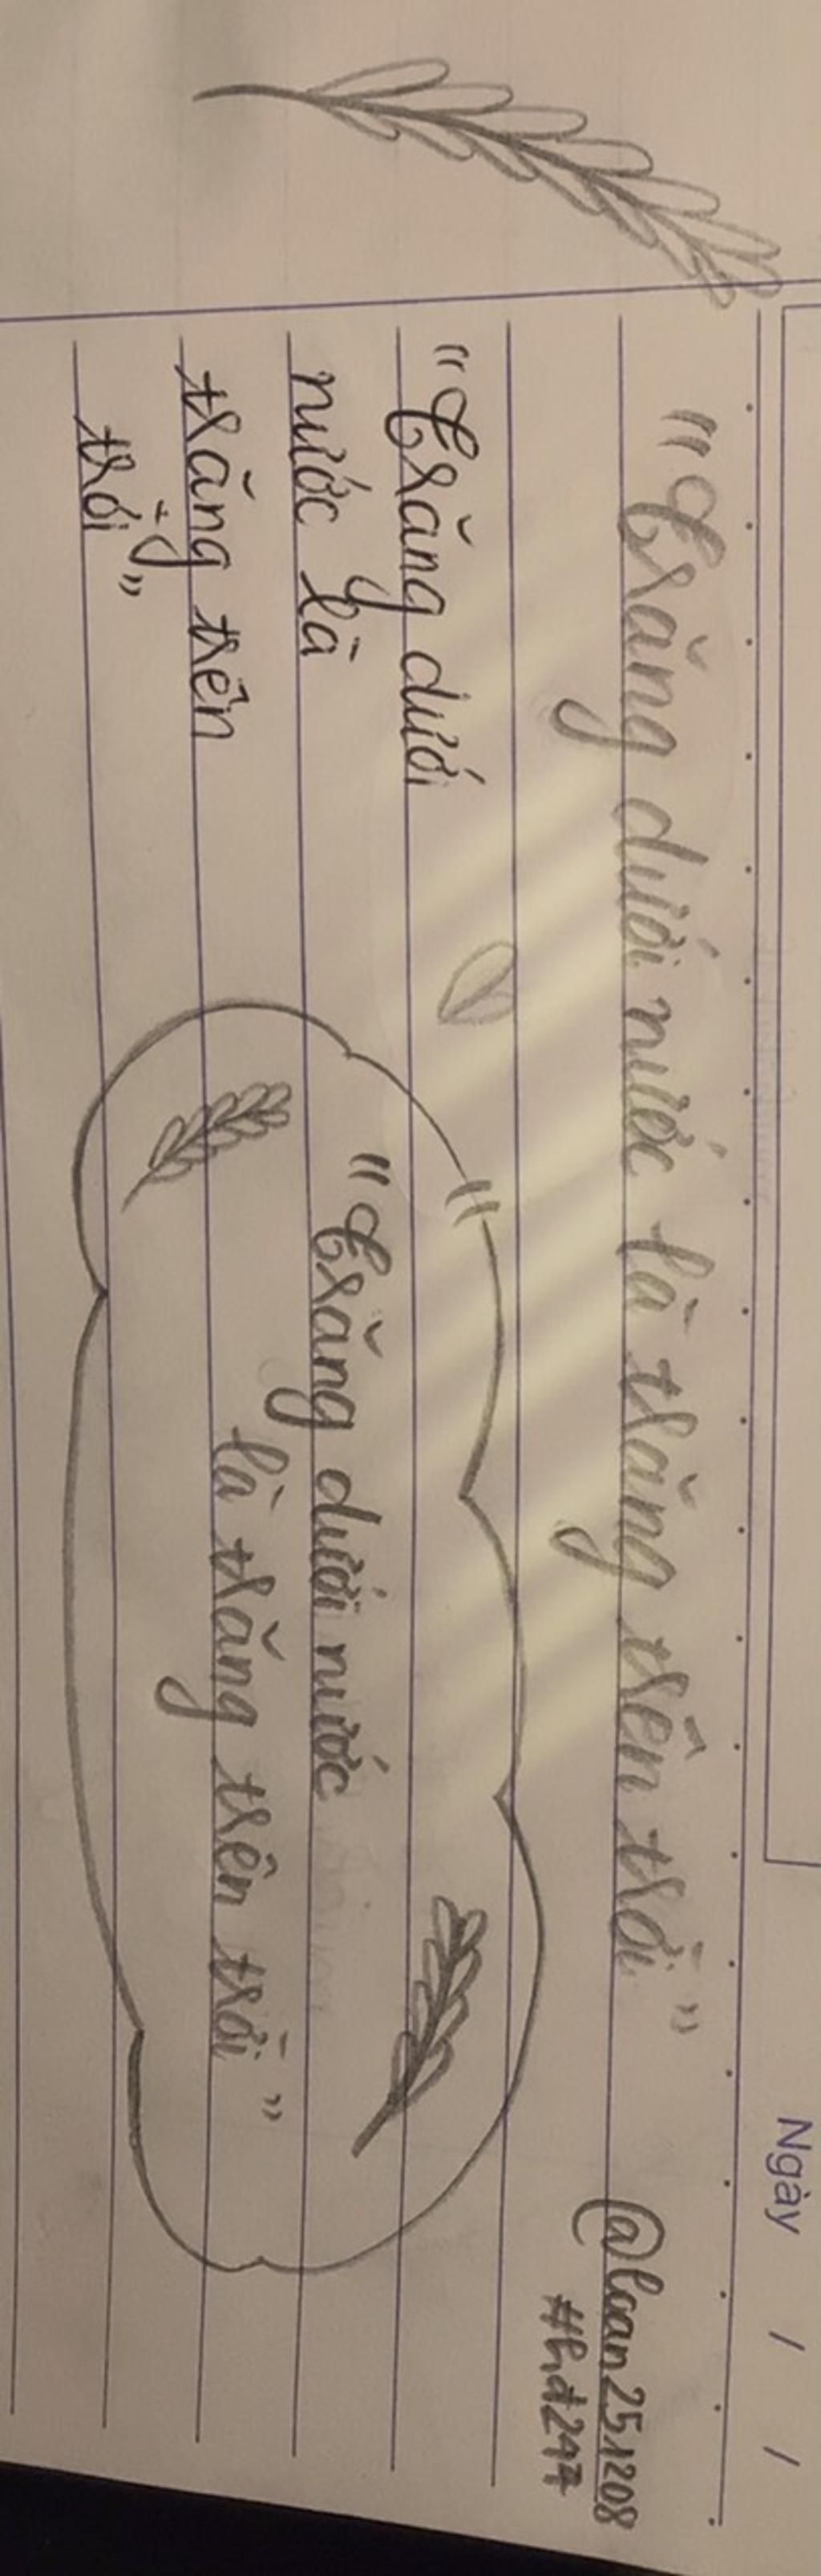 Ngày / /
"Trăng dưới nước là trăng trên trời"
@loan251208
#hđ247
"Trăng dưới
nước là
trăng trên
trời"
"Trăng dưới nước
là trăng trên trời"